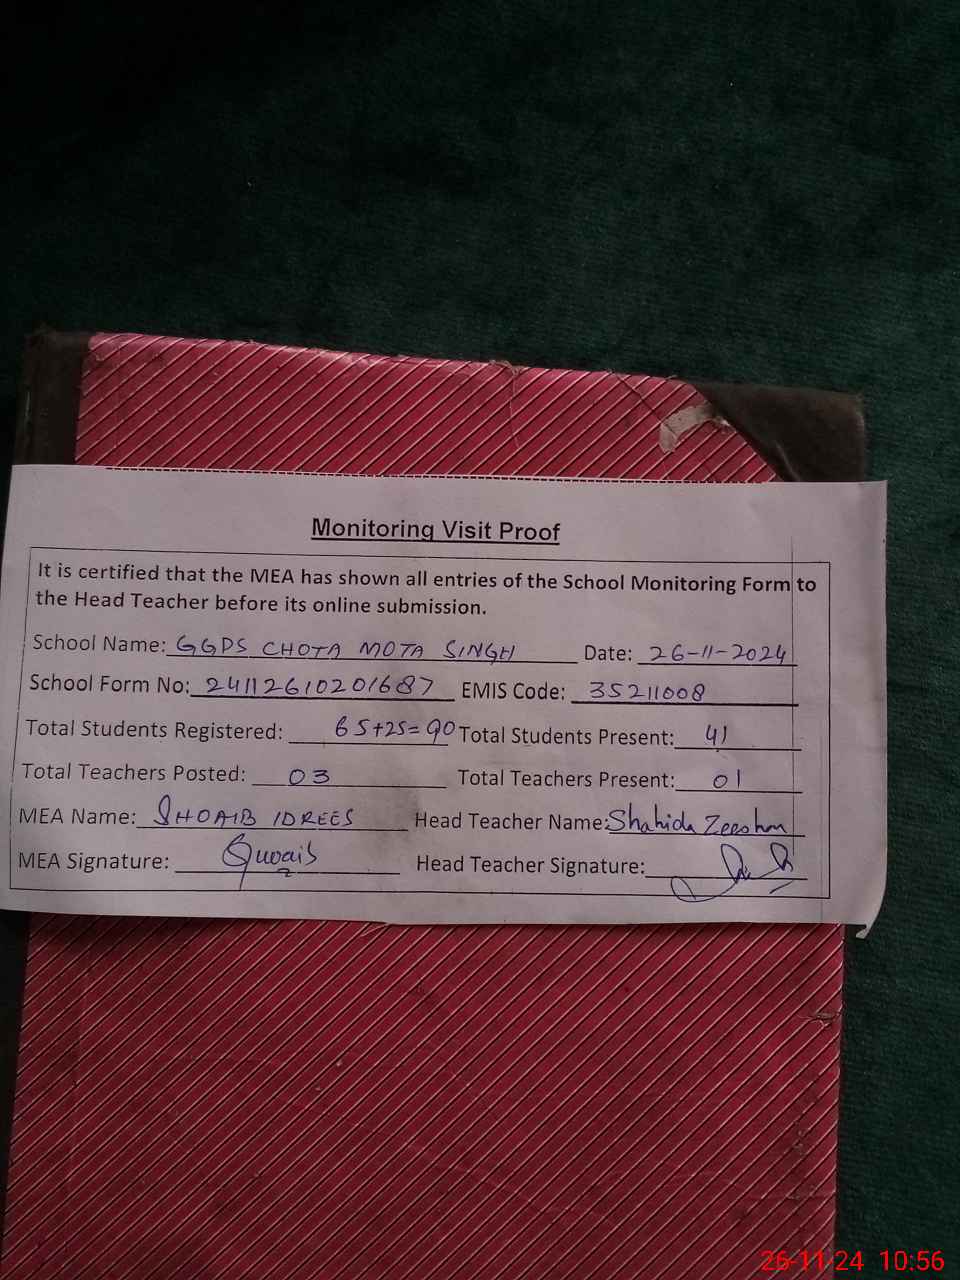 Monitoring Visit Proof
It is certified that the MEA has shown all entries of the School Monitoring Form to
the Head Teacher before its online submission.
School Name: GGPS CHOTA MOTA SINGH Date: 26-11-2024
School Form No: 24112610201687 EMIS Code: 35211008
Total Students Registered: 65+25=90 Total Students Present: 41
Total Teachers Posted: 03 Total Teachers Present: 01
MEA Name: SHOAIB IDREES Head Teacher Name: Shahida Zeeshan
MEA Signature: Head Teacher Signature:
26-11-24 10:56